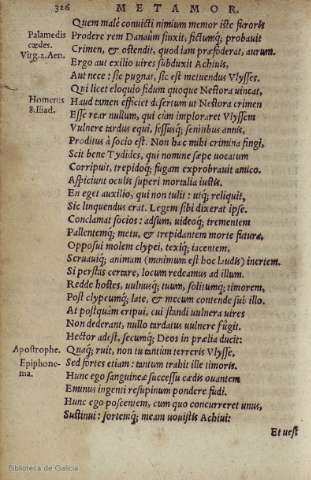 326 METAMOR.
Quem malè convicti nimium memor iste furoris
Palamedis Prodere rem Danaûm finxit, fictumq́; probavit
cædes. Crimen, & ostendit, quod iam præfoderat, aurum.
Virg. 2. Aen. Ergo aut exilio vires subduxit Achiuis,
Aut nece: sic pugnat, sic est metuendus Vlysses.
Qui licet eloquio fidum quoque Nestora vincat,
Homerus Haud tamen efficiet disertum ut Nestora crimen
8. Iliad. Esse rear nullum, qui cùm imploraret Vlyssem
Vulnere tardus equi, fessusq́; senibus annis,
Proditus à socio est. Non hæc mihi crimina fingi,
Scit bene Tydides, qui nomine sæpe vocatum
Corripuit, trepidoq́; fugam exprobrauit amico.
Aspiciunt oculis superi mortalia iustis.
En eget auxilio, qui non tulit: utq́; reliquit,
Sic linquendus erat. Legem sibi dixerat ipse.
Conclamat socios: adsum, uideoq́; trementem
Pallentemq́; metu, & trepidantem morte futura,
Opposui molem clypei, texiq́; iacentem,
Seruauiq́; animam (minimum est hoc laudis) inertem.
Si perstas certare, locum redeamus ad illum.
Redde hostes, vulnusq́; tuum, solitumq́; timorem,
Post clypeumq́; late, & mecum contende sub illo.
At postquàm eripui, cui standi vulnera vires
Non dederant, nullo tardatus vulnere fûgit.
Hector adest, secumq́; Deos in prælia ducit:
Apostrophe. Quaq́; ruit, non tu tantùm terreris Vlysse,
Epiphone- Sed fortes etiam: tantum trahit ille timoris.
ma. Hunc ego sanguineæ successu cædis ouantem
Eminus ingenti resupinum pondere fudi.
Hunc ego poscentem, cum quo concurreret unus,
Sustinui: sortemq́; meam uouistis Achiui:
Et uest
Biblioteca de Galicia